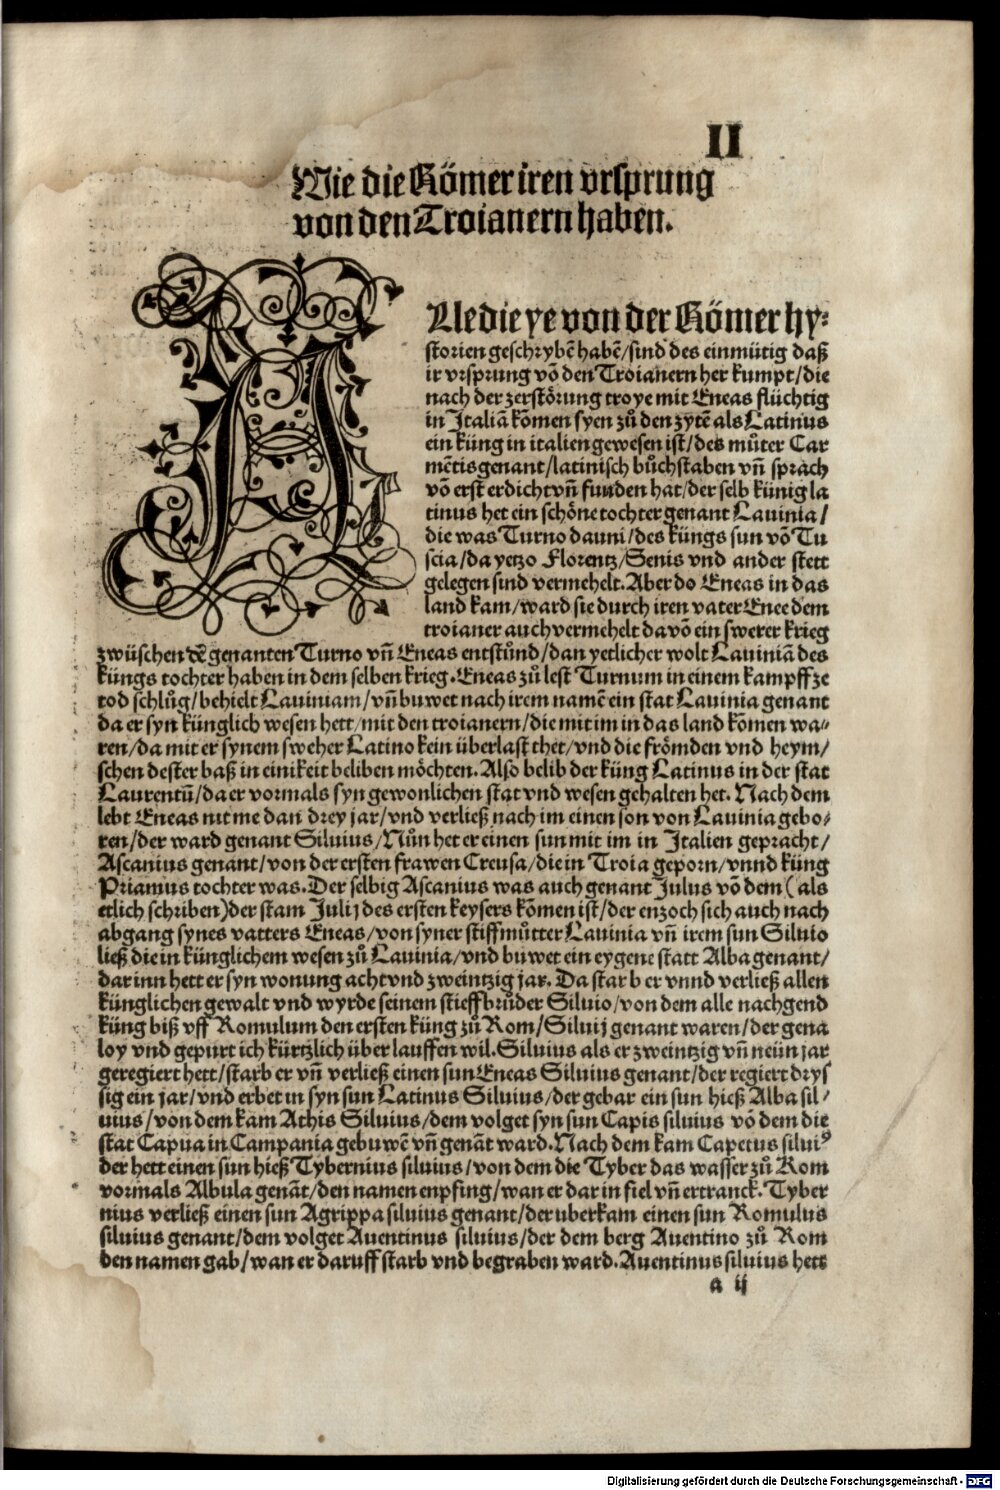 II
Wie die Römer iren vrsprung
von den Troianern haben.
ALle die ye von der Römer hy-
storien geschrybē habē/sind des einmütig daß
ir vrsprung vō den Troianern her kumpt/die
nach der zerstörung troye mit Eneas flüchtig
in Italiā kōmen syen zů den zytē als Latinus
ein küng in italien gewesen ist/des můter Car
mētis genant/latinisch bůchstaben vñ sprach
vō erst erdicht vñ funden hat/der selb künig la
tinus het ein schöne tochter genant Lauinia/
die was Turno dauni/des küngs sun vō Tu
scia/da yetzo Florentz/Senis vnd ander stett
gelegen sind vermehelt. Aber do Eneas in das
land kam/ward sie durch iren vater Enee dem
troianer auch vermehelt da vō ein swerer krieg
zwüschen dē genanten Turno vñ Eneas entstůnd/dan yetlicher wolt Lauiniā des
küngs tochter haben in dem selben krieg. Eneas zů lest Turnum in einem kampff ze
tod schlůg/behielt Lauiniam/vñ buwet nach irem namē ein stat Lauinia genant
da er syn künglich wesen hett/mit den troianern/die mit im in das land kōmen wa-
ren/da mit er synem sweher Latino kein überlast thet/vnd die frömden vnd heym/
schen dester baß in einikeit beliben möchten. Also belib der küng Latinus in der stat
Laurentū/da er vormals syn gewonlichen stat vnd wesen gehalten het. Nach dem
lebt Eneas nit me dan drey jar/vnd verließ nach im einen son von Lauinia gebo-
ren/der ward genant Siluius/Nůn het er einen sun mit im in Italien gepracht/
Ascanius genant/von der ersten frawen Creusa/die in Troia geporn/vnnd küng
Priamus tochter was. Der selbig Ascanius was auch genant Julus vō dem (als
etlich schriben) der stam Julij des ersten keysers kōmen ist/der enzoch sich auch nach
abgang synes vatters Eneas/von syner stiffmůtter Lauinia vñ irem sun Siluio
ließ die in künglichem wesen zů Lauinia/vnd buwet ein eygene statt Alba genant/
dar inn hett er syn wonung acht vnd zweintzig jar. Da starb er vnnd verließ allen
künglichen gewalt vnd wyrde seinem stieffbrůder Siluio/von dem alle nachgend
küng biß vff Romulum den ersten küng zů Rom/Siluij genant waren/der gena
loy vnd gepurt ich kürtzlich über lauffen wil. Siluius als er zweintzig vñ neün jar
geregiert hett/starb er vñ verließ einen sun Eneas Siluius genant/der regiert drys
sig ein jar/vnd erbet in syn sun Latinus Siluius/der gebar ein sun hieß Alba sil/
uius/von dem kam Athis Siluius/dem volget syn sun Capis siluius vō dem die
stat Capua in Campania gebuwē vñ genāt ward. Nach dem kam Capetus siluiꝰ
der hett einen sun hieß Tybernius siluius/von dem die Tyber das wasser zů Rom
vormals Albula genāt/den namen enpfing/wan er dar in fiel vñ ertranck. Tyber
nius verließ einen sun Agrippa siluius genant/der uberkam einen sun Romulus
siluius genant/dem volget Auentinus siluius/der dem berg Auentino zů Rom
den namen gab/wan er daruff starb vnd begraben ward. Auentinus siluius hett
a ij
Digitalisierung gefördert durch die Deutsche Forschungsgemeinschaft - DFG